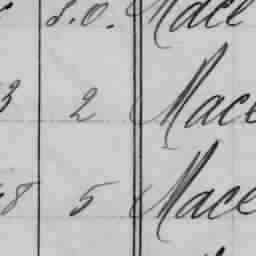 S.O. Mace
3 2 Mace
8 5 Mace